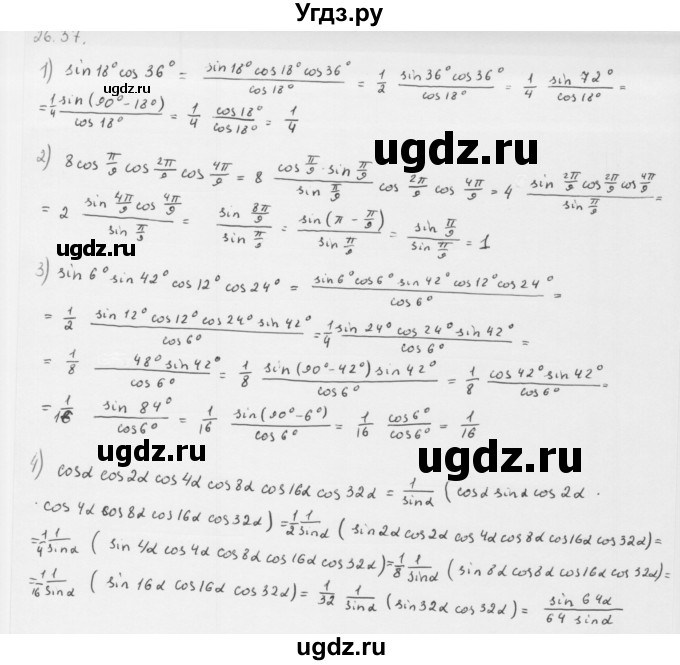 Угдз.ру
26.37.
1) sin 18° cos 36° = (sin 18° cos 18° cos 36°)/(cos 18°) = 1/2 (sin 36° cos 36°)/(cos 18°) = 1/4 (sin 72°)/(cos 18°) =
= 1/4 (sin (90° - 18°))/(cos 18°) = 1/4 (cos 18°)/(cos 18°) = 1/4
ugdz.ru
ugdz.ru
2) 8 cos π/9 cos 2π/9 cos 4π/9 = 8 (cos π/9 · sin π/9)/(sin π/9) cos 2π/9 cos 4π/9 = 4 · (sin 2π/9 cos 2π/9 cos 4π/9)/(sin π/9) =
= 2 (sin 4π/9 cos 4π/9)/(sin π/9) = (sin 8π/9)/(sin π/9) = (sin (π - π/9))/(sin π/9) = (sin π/9)/(sin π/9) = 1
ugdz.ru
ugdz.ru
3) sin 6° sin 42° cos 12° cos 24° = (sin 6° cos 6° sin 42° cos 12° cos 24°)/(cos 6°) =
= 1/2 (sin 12° cos 12° cos 24° sin 42°)/(cos 6°) = 1/4 (sin 24° cos 24° sin 42°)/(cos 6°) =
= 1/8 (48° sin 42°)/(cos 6°) = 1/8 (sin (90° - 42°) sin 42°)/(cos 6°) = 1/8 (cos 42° sin 42°)/(cos 6°) =
ugdz.ru
= 1/16 (sin 84°)/(cos 6°) = 1/16 (sin (90° - 6°))/(cos 6°) = 1/16 (cos 6°)/(cos 6°) = 1/16
ugdz.ru
4) cosα cos 2α cos 4α cos 8α cos 16α cos 32α = 1/sinα (cosα sinα cos 2α ·
· cos 4α cos 8α cos 16α cos 32α) = 1/2 1/sinα (sin 2α cos 2α cos 4α cos 8α cos 16α cos 32α) =
= 1/4 1/sinα (sin 4α cos 4α cos 8α cos 16α cos 32α) = 1/8 1/sinα (sin 8α cos 8α cos 16α cos 32α) =
ugdz.ru
ugdz.ru
= 1/16 1/sinα (sin 16α cos 16α cos 32α) = 1/32 1/sinα (sin 32α cos 32α) = (sin 64α)/(64 sinα)
ugdz.ru